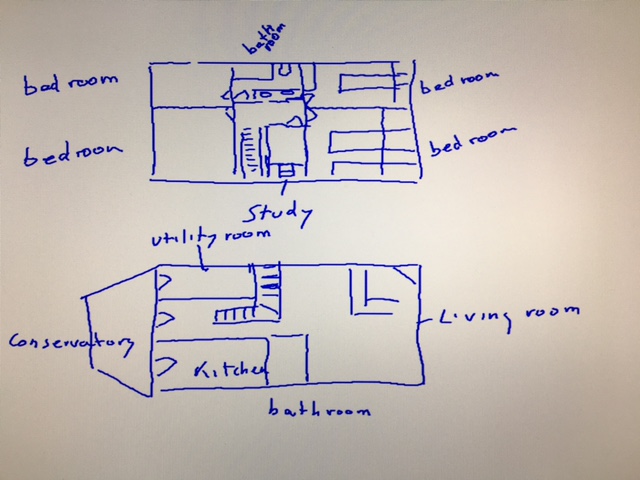 bath
room
bad room
bedroom
bedroom
bedroom
Study
utility room
Conservatory
Living room
Kitchen
bathroom